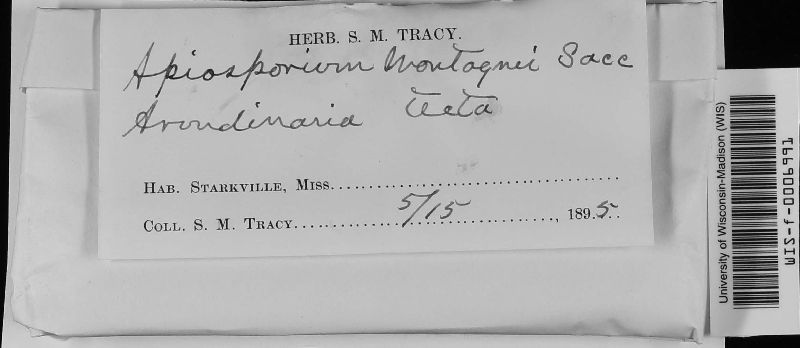 HERB. S. M. TRACY.
Apiosporium Montagnei Sacc
Arundinaria tecta
HAB. STARKVILLE, MISS.
COLL. S. M. TRACY. 5/15, 1895.
University of Wisconsin-Madison (WIS)
WIS-f-0006991